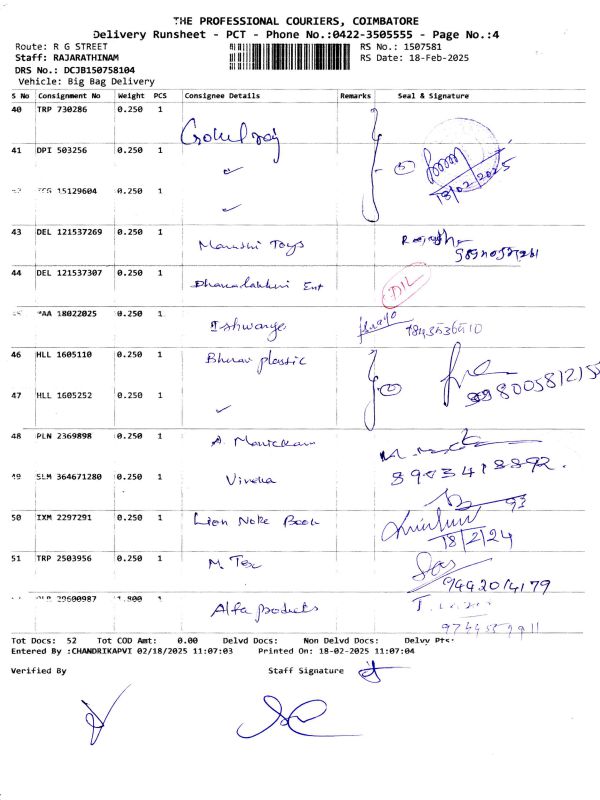 THE PROFESSIONAL COURIERS, COIMBATORE
Delivery Runsheet - PCT - Phone No.:0422-3505555 - Page No.:4
Route: R G STREET RS No.: 1507581
Staff: RAJARATHINAM RS Date: 18-Feb-2025
DRS No.: DCJB150758104
Vehicle: Big Bag Delivery
S No Consignment No Weight PCS Consignee Details Remarks Seal & Signature
40 TRP 730286 0.250 1
Gokulraj
41 DPI 503256 0.250 1
18/02/2025
15129604 0.250 1
43 DEL 121537269 0.250 1
Toys
44 DEL 121537307 0.250 1
Dhanalakshmi Ent
DIL
18022025 0.250 1
Ishwarya
46 HLL 1605110 0.250 1
plastic
47 HLL 1605252 0.250 1
48 PLN 2369898 0.250 1
A. Manickam
8903418892.
49 SLM 364671280 0.250 1
50 IXM 2297291 0.250 1
Lion Note Book
18/2/24
51 TRP 2503956 0.250 1
M. Tex
9442014179
29600987 1.800 1
Alfa products
Tot Docs: 52 Tot COD Amt: 0.00 Delvd Docs: Non Delvd Docs: Delvy Ptc:
Entered By :CHANDRIKAPVI 02/18/2025 11:07:03 Printed On: 18-02-2025 11:07:04
Verified By Staff Signature